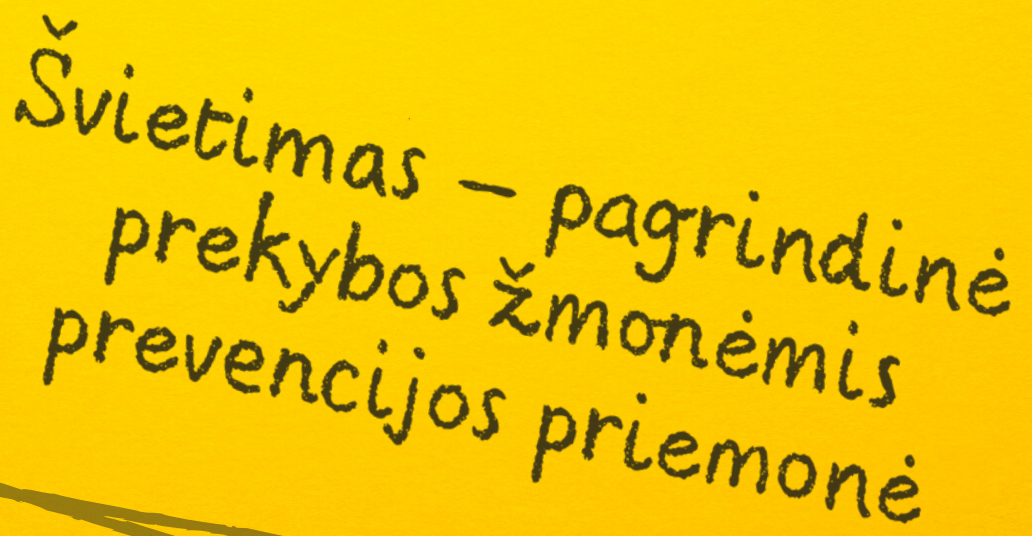 Švietimas – pagrindinė
prekybos žmonėmis
prevencijos priemonė